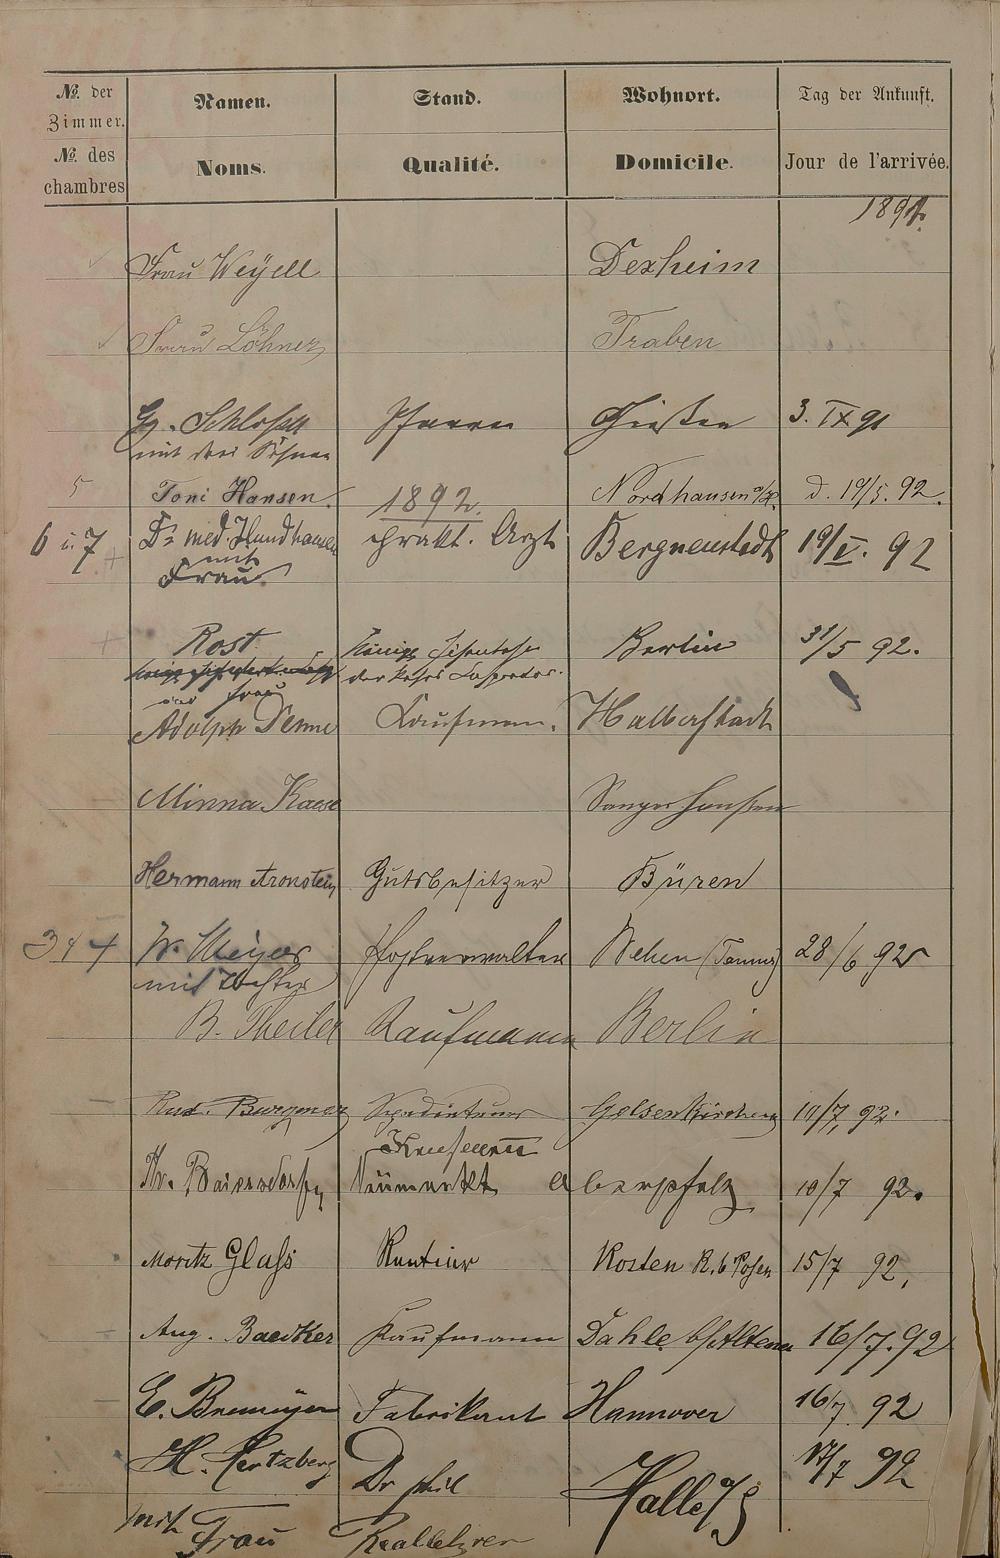 № der Zimmer. Namen. Stand. Wohnort. Tag der Ankunft.
№ des chambres Noms. Qualité. Domicile. Jour de l'arrivée.
1891.
Frau Weyell Dexheim
Frau Löhner Traben
Schlosser Pfarrer Gießen 3. IX 91
mit drei Söhnen
5 Toni Hansen Nordhausen a/H. d. 19/5. 92.
1892.
6 u. 7 Dr med. Hundhausen prakt. Arzt Bergneustadt 19/V. 92
mit
Frau
Rost Königl. Berlin 31/5 92.
und Frau
Adolph Kaufmann. Halberstadt
Minna Sangerhausen
Hermann Aronstein Gutsbesitzer Büren
3 4 W. Meyer Postverwalter Wehen (Taunus) 28/6 92
mit Tochter
B. Theiler Kaufmann Berlin
Gelsenkirchen 10/7. 92.
Kaufmann
Neumarkt Oberpfalz 10/7 92.
Moritz Glaß Rentier Kosten R. b Posen 15/7 92.
Aug. Baedker Kaufmann Dahle b/Altena 16/7. 92
E. Fabrikant Hannover 16/7. 92
H. Hertzberg Dr phil Halle a/S 17/7 92
mit Frau Reallehrer